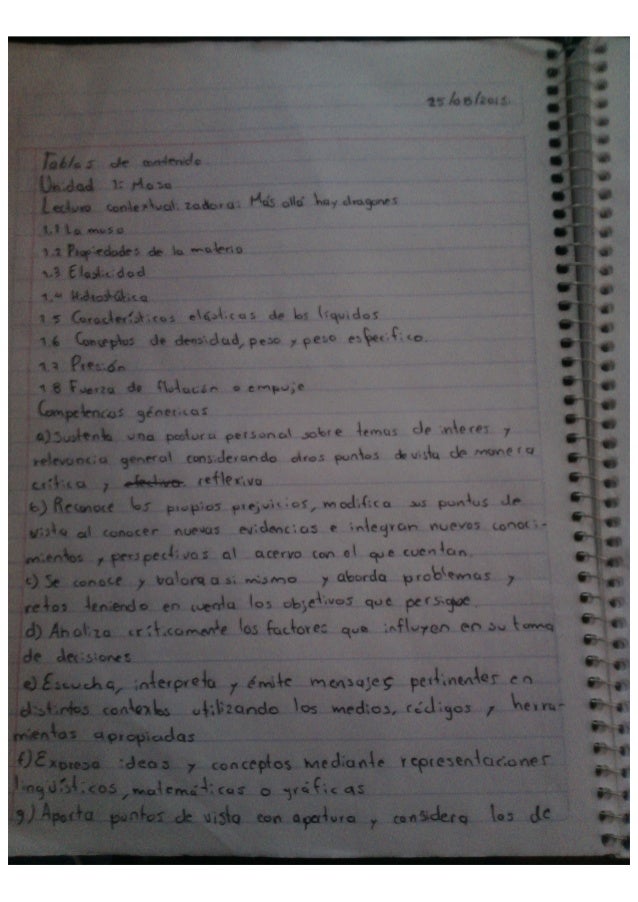 25/08/2015.
Tablas de contenido.
Unidad 1: Masa
Lectura contextualizadora: Más allá hay dragones
1.1 La masa
1.2 Propiedades de la materia
1.3 Elasticidad
1.4 Hidrostática
1.5 Características elásticas de los líquidos
1.6 Conceptos de densidad, peso y peso esperifico.
1.7 Presión
1.8 Fuerza de flotación o empuje
Competencias génericas
a) Sustenta una postura personal sobre temas de interes y
relevancia general considerando otros puntos de vista de manera
crítica y efectiva reflexiva
b) Reconoce los propios prejuicios, modifica sus puntos de
vista al conocer nuevas evidencias e integran nuevos conoci-
mientos y perspectivas al acervo con el que cuentan.
c) Se conoce y valora a si mismo y aborda problemas y
retos teniendo en cuenta los objetivos que persigue.
d) Analiza críticamente los factores que influyen en su toma
de decisiones
e) Escucha, interpreta y émite mensajes pertinentes en
distintos contextos utilizando los medios, códigos y herra-
mientas apropiadas
f) Expresa ideas y conceptos mediante representaciones
lingüísticas, matemáticas o gráficas
g.) Aporta puntos de vista con apertura y considera los de